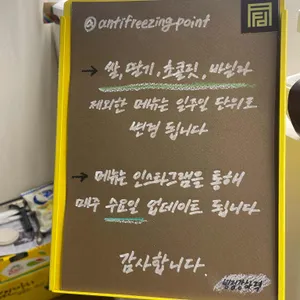 @antifreezing-point
→ 쌀, 딸기, 초콜릿, 바닐라
제외한 메뉴는 일주일 단위로
변경 됩니다
→ 메뉴는 인스타그램을 통해
매주 수요일 업데이트 됩니다.
감사합니다.